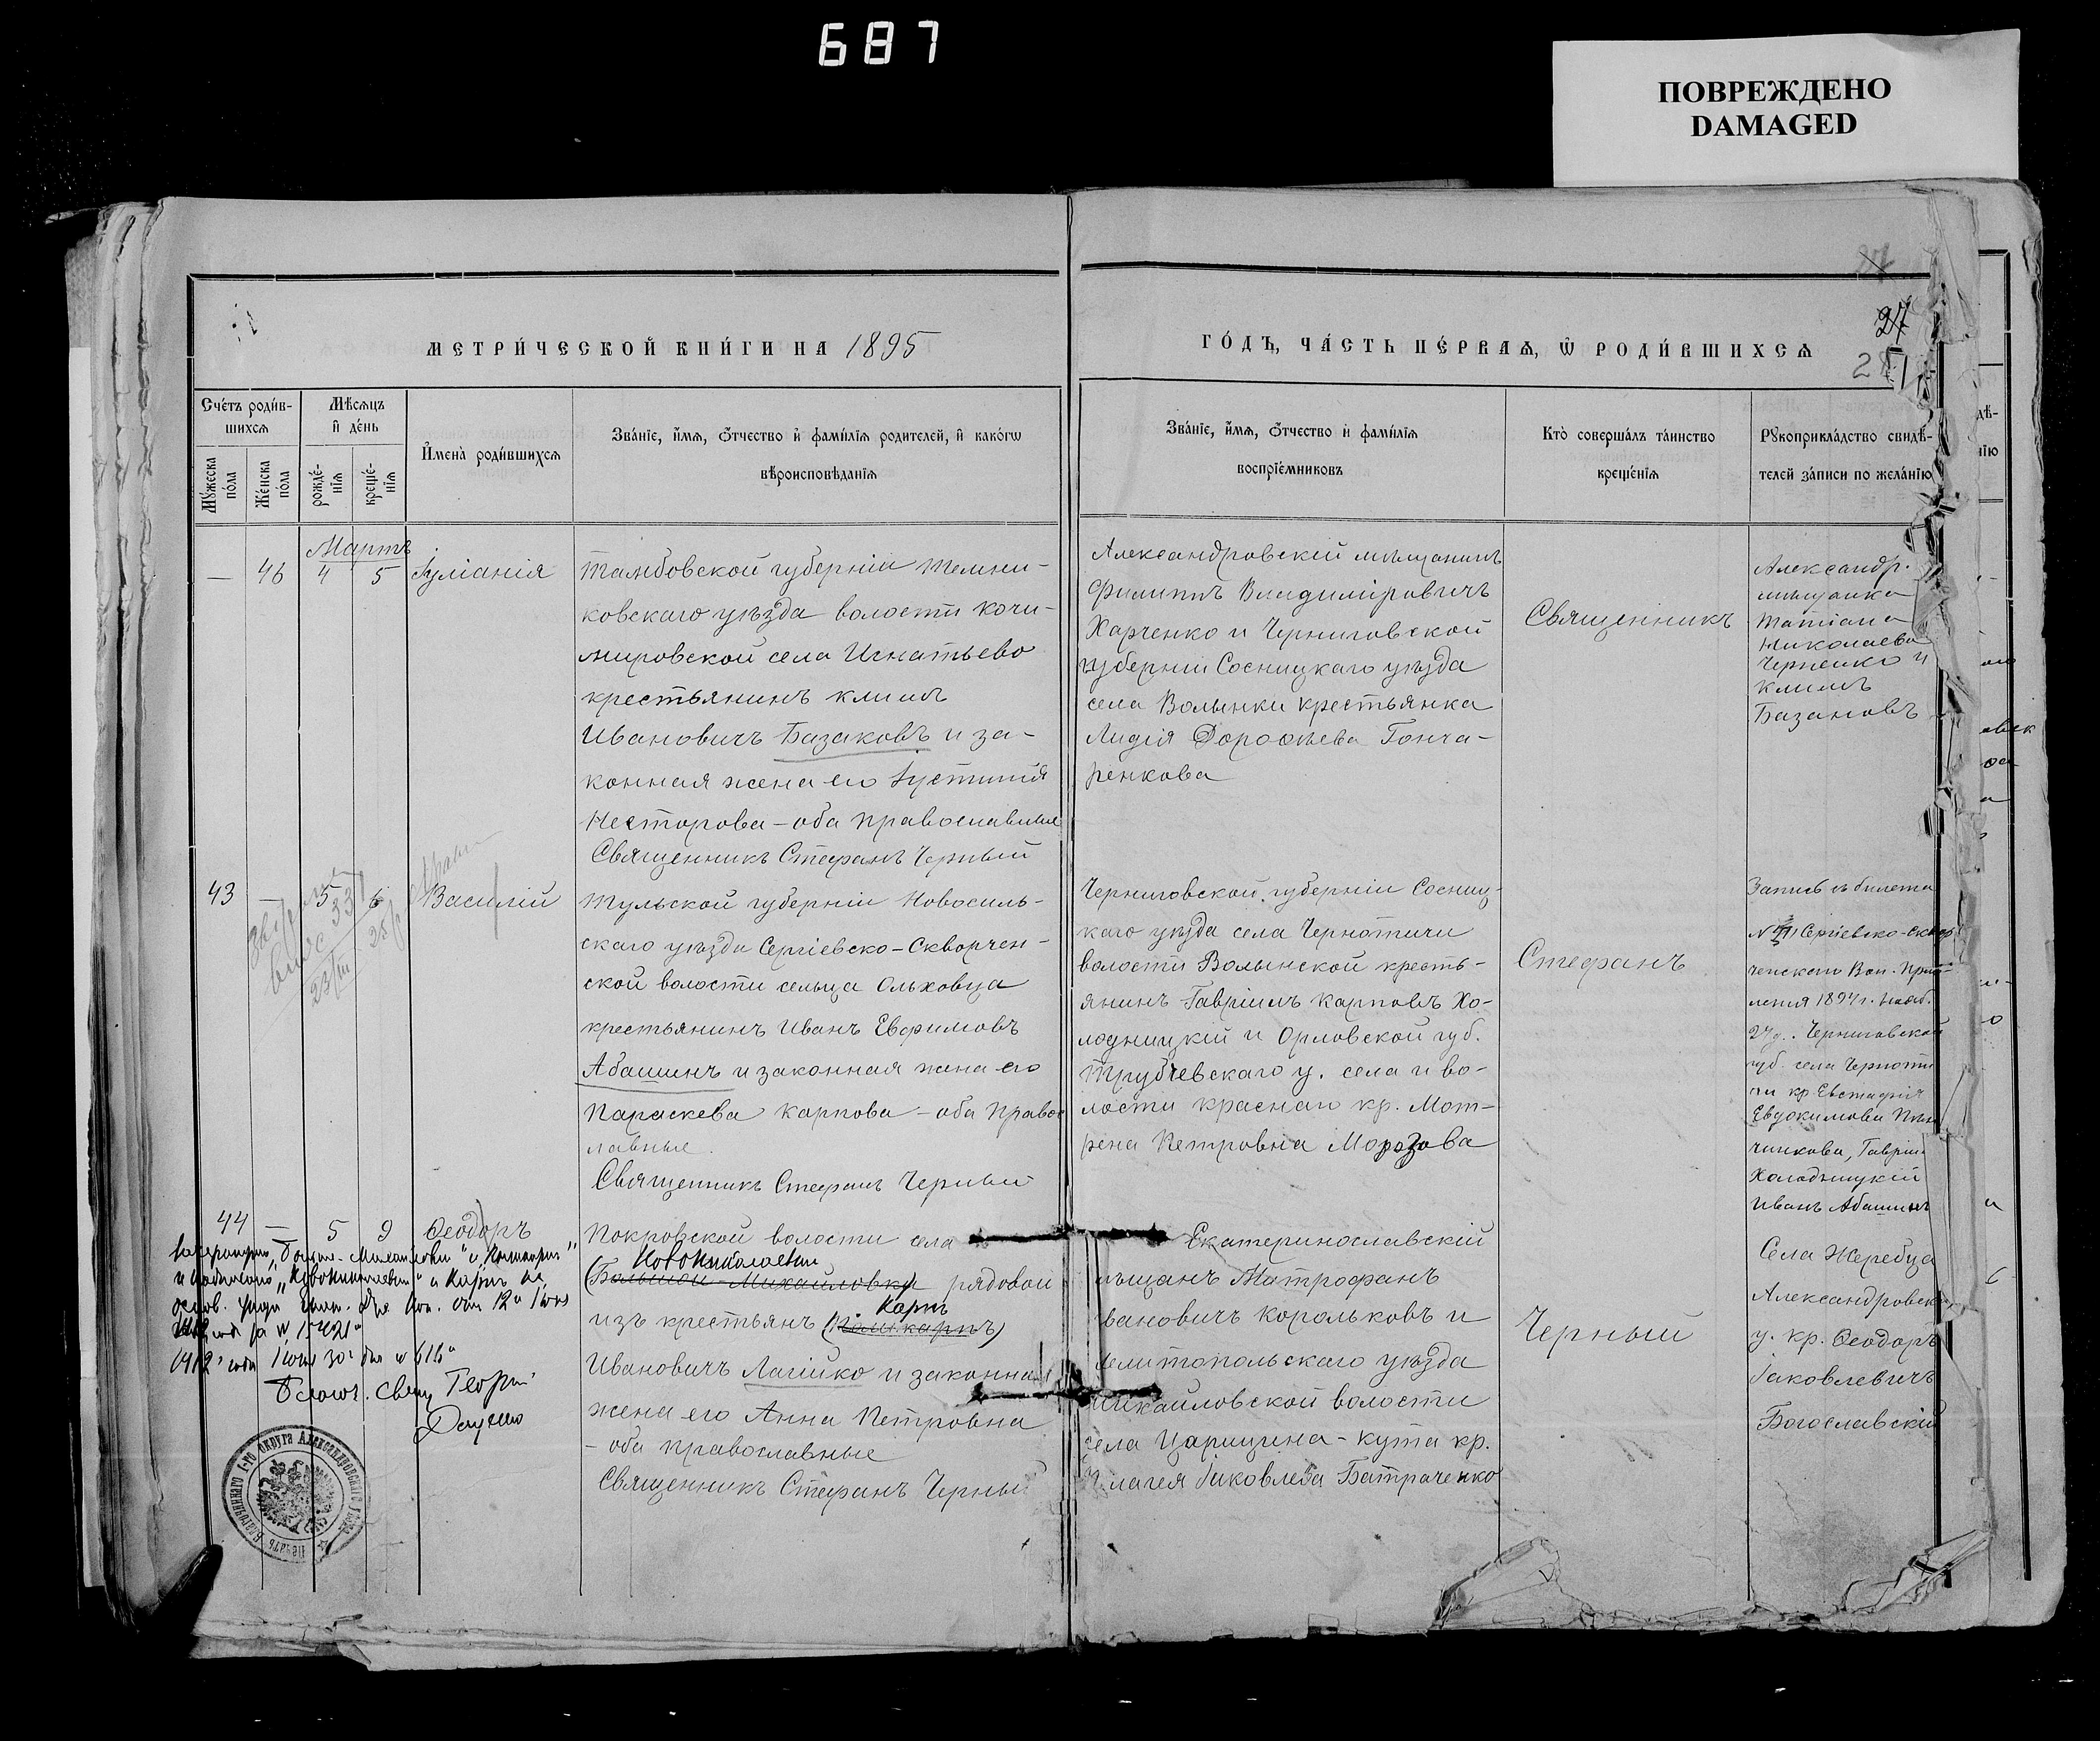 687
ПОВРЕЖДЕНО
DAMAGED
МЕТРИ́ЧЕСКОЙ КНИ́ГИ НА 1895
ГО́ДЪ, ЧА́СТЬ ПЕ́РВАѦ, Ѿ РОДИ́ВШИХСѦ
27
Сче́тъ роди́в-
шихсѧ
Мѣ́сѧцъ
и҆ де́нь
Мꙋ́жеска
по́ла
Же́нска
по́ла
рожде́-
нїѧ
креще́-
нїѧ
И҆мена̀ роди́вшихсѧ
Зва́нїе, и҆́мѧ, ѻ҆́тчество и҆ фамѝлїѧ родителей, и҆ како́гѡ
вѣ́роисповѣ́данїѧ
Зва́нїе, и҆́мѧ, ѻ҆́тчество и҆ фамѝлїѧ
воспрїе́мниковъ
Кто̀ соверша́лъ та́инство
креще́нїѧ
Рꙋкоприкла́дство свидѣ́-
телей за́писи по жела́нїю
Мартъ
— 46 4 5 Іуліанія
Тамбовской губерніи Темни-
ковскаго уѣзда волости Кочи-
мировской села Игнатьево
крестьянинъ Климъ
Ивановичъ Базаковъ и за-
конная жена его Іустинія
Несторова – оба православные
Священникъ Стефанъ Черный
Александровскій мѣщанинъ
Филиппъ Владиміровичъ
Харченко и Черниговской
губерніи Сосницкаго уѣзда
села Волынки крестьянка
Лидія Дороѳѣева Гонча-
ренкова
Священникъ
Александр.
мѣщанка
Татіана
Николаева
Черненко и
Климъ
Базановъ
43 — 5 6 Василій
Тульской губерніи Новосиль-
скаго уѣзда Сергіевско-Скворчен-
ской волости сельца Ольховца
крестьянинъ Иванъ Евфимовъ
Абашинъ и законная жена его
Параскева Карпова – оба право
славные.
Священникъ Стефанъ Черный
Черниговской губерніи Сосниц-
каго уѣзда села Чернотичи
волости Волынской кресть-
янинъ Гавріилъ Карповъ Хо-
лодницкій и Орловской губ.
Трубчевскаго у. села и во-
лости Краснаго кр. Мот-
рена Петровна Морозова
Стефанъ
Запись съ билета
Сергіевско-Сквор
ченскаго Вол. Прав-
ленія 1894 г. Нояб.
27 д. Черниговской
губ. села Черноти
чи кр Евстафія
Евдокимова
чикова, Гавріил
Холодницкій
Иванъ Абашинъ
44 — 5 9 Ѳеодоръ
Покровской волости села
Новониколаевки
(Большой-Михайловки) рядовой
Карпъ
изъ крестьянъ (Поликарпъ)
Ивановичъ Лагійко и законная
жена его Анна Петровна
– оба православные
Священникъ Стефанъ Черный
Екатеринославскій
мѣщанъ Митрофанъ
вановичъ Корольковъ и
Мелитопольскаго уѣзда
Михайловской волости
села Царицина-Кута кр.
Пелагея Іаковлева Батраченко
Черный
Села Жеребца
Александровск
у. кр. Ѳеодоръ
Іаковлевичъ
Богославскій
1912 года Іюня 30 дня № 616
Благоч. Свящ. Георгій